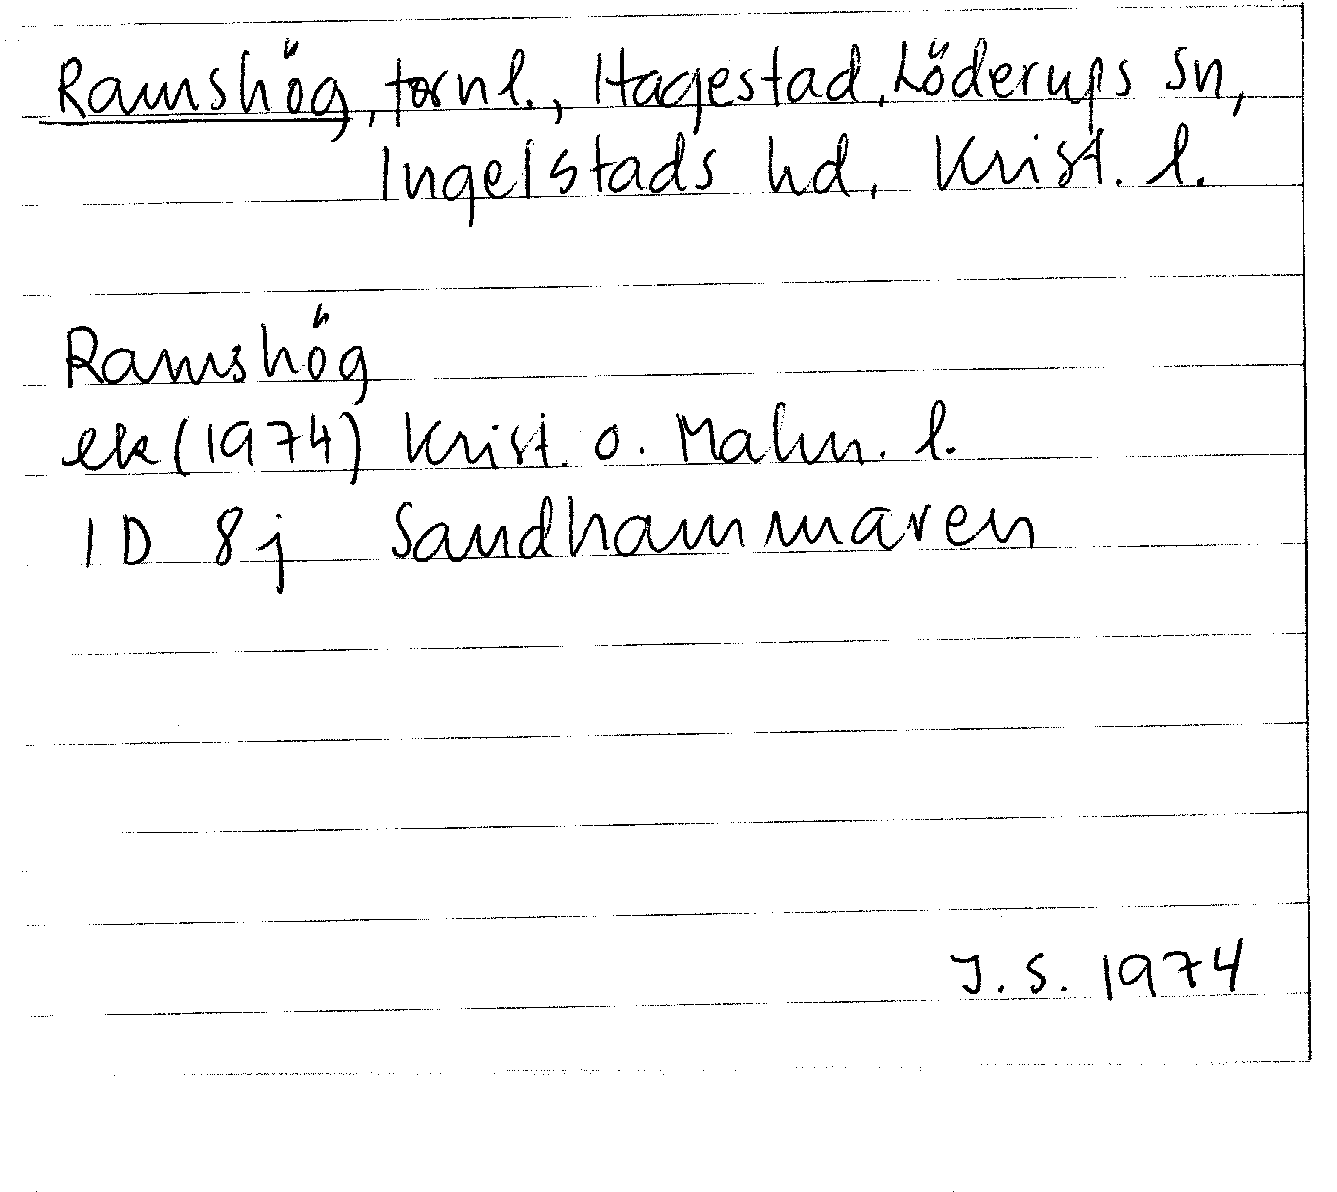 Ramshög, fornl., Hagestad, Löderups sn,
Ingelstads hd, Krist. l.
Ramshög
ek (1974) Krist. o. Malm. l.
1D 8j Sandhammaren
J.S. 1974